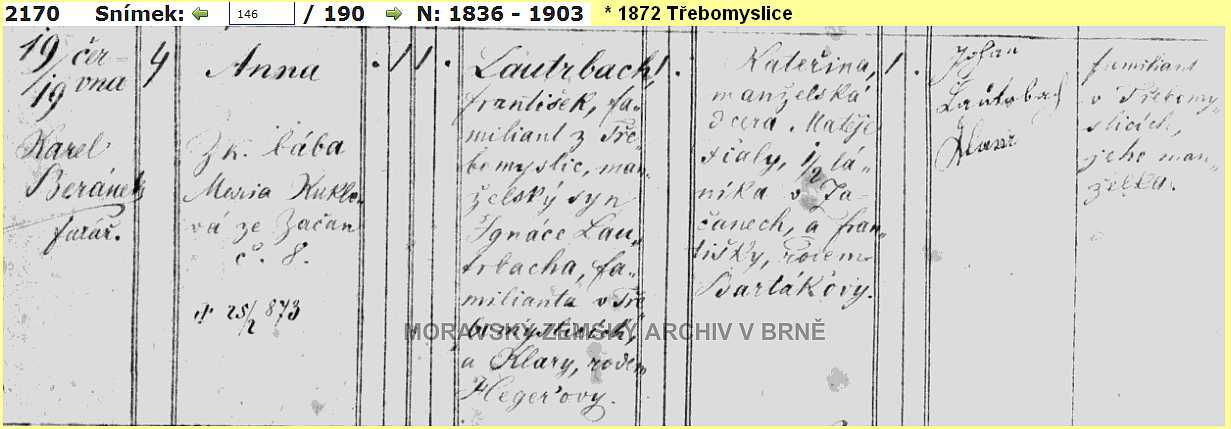 2170 Snímek: 146 / 190 N: 1836 - 1903 * 1872 Třebomyslice
19/19 čer-
vna
Karel
Beránek
farář.
4
Anna
Zk. bába
Maria Kukle-
vá ze Začan
č. 8.
25/2 873
1 1
Lautrbach
František, fa-
miliant z Tře-
bomyslic, man-
želský syn
Ignáce Lau-
trbacha, fa-
milianta v Tře-
bomyslicích,
a Klary, rodem
Hegerovy.
1
Kateřina,
manželská
dcera Matěje
Fialy, 1/2 lá-
níka v Ža-
čanech, a Fran-
tišky, rodem
Bartákovy.
1
Johan
Lautrbach
familiant
v Třebomy-
slicích,
jeho man-
želka.
MORAVSKÝ ZEMSKÝ ARCHIV V BRNĚ